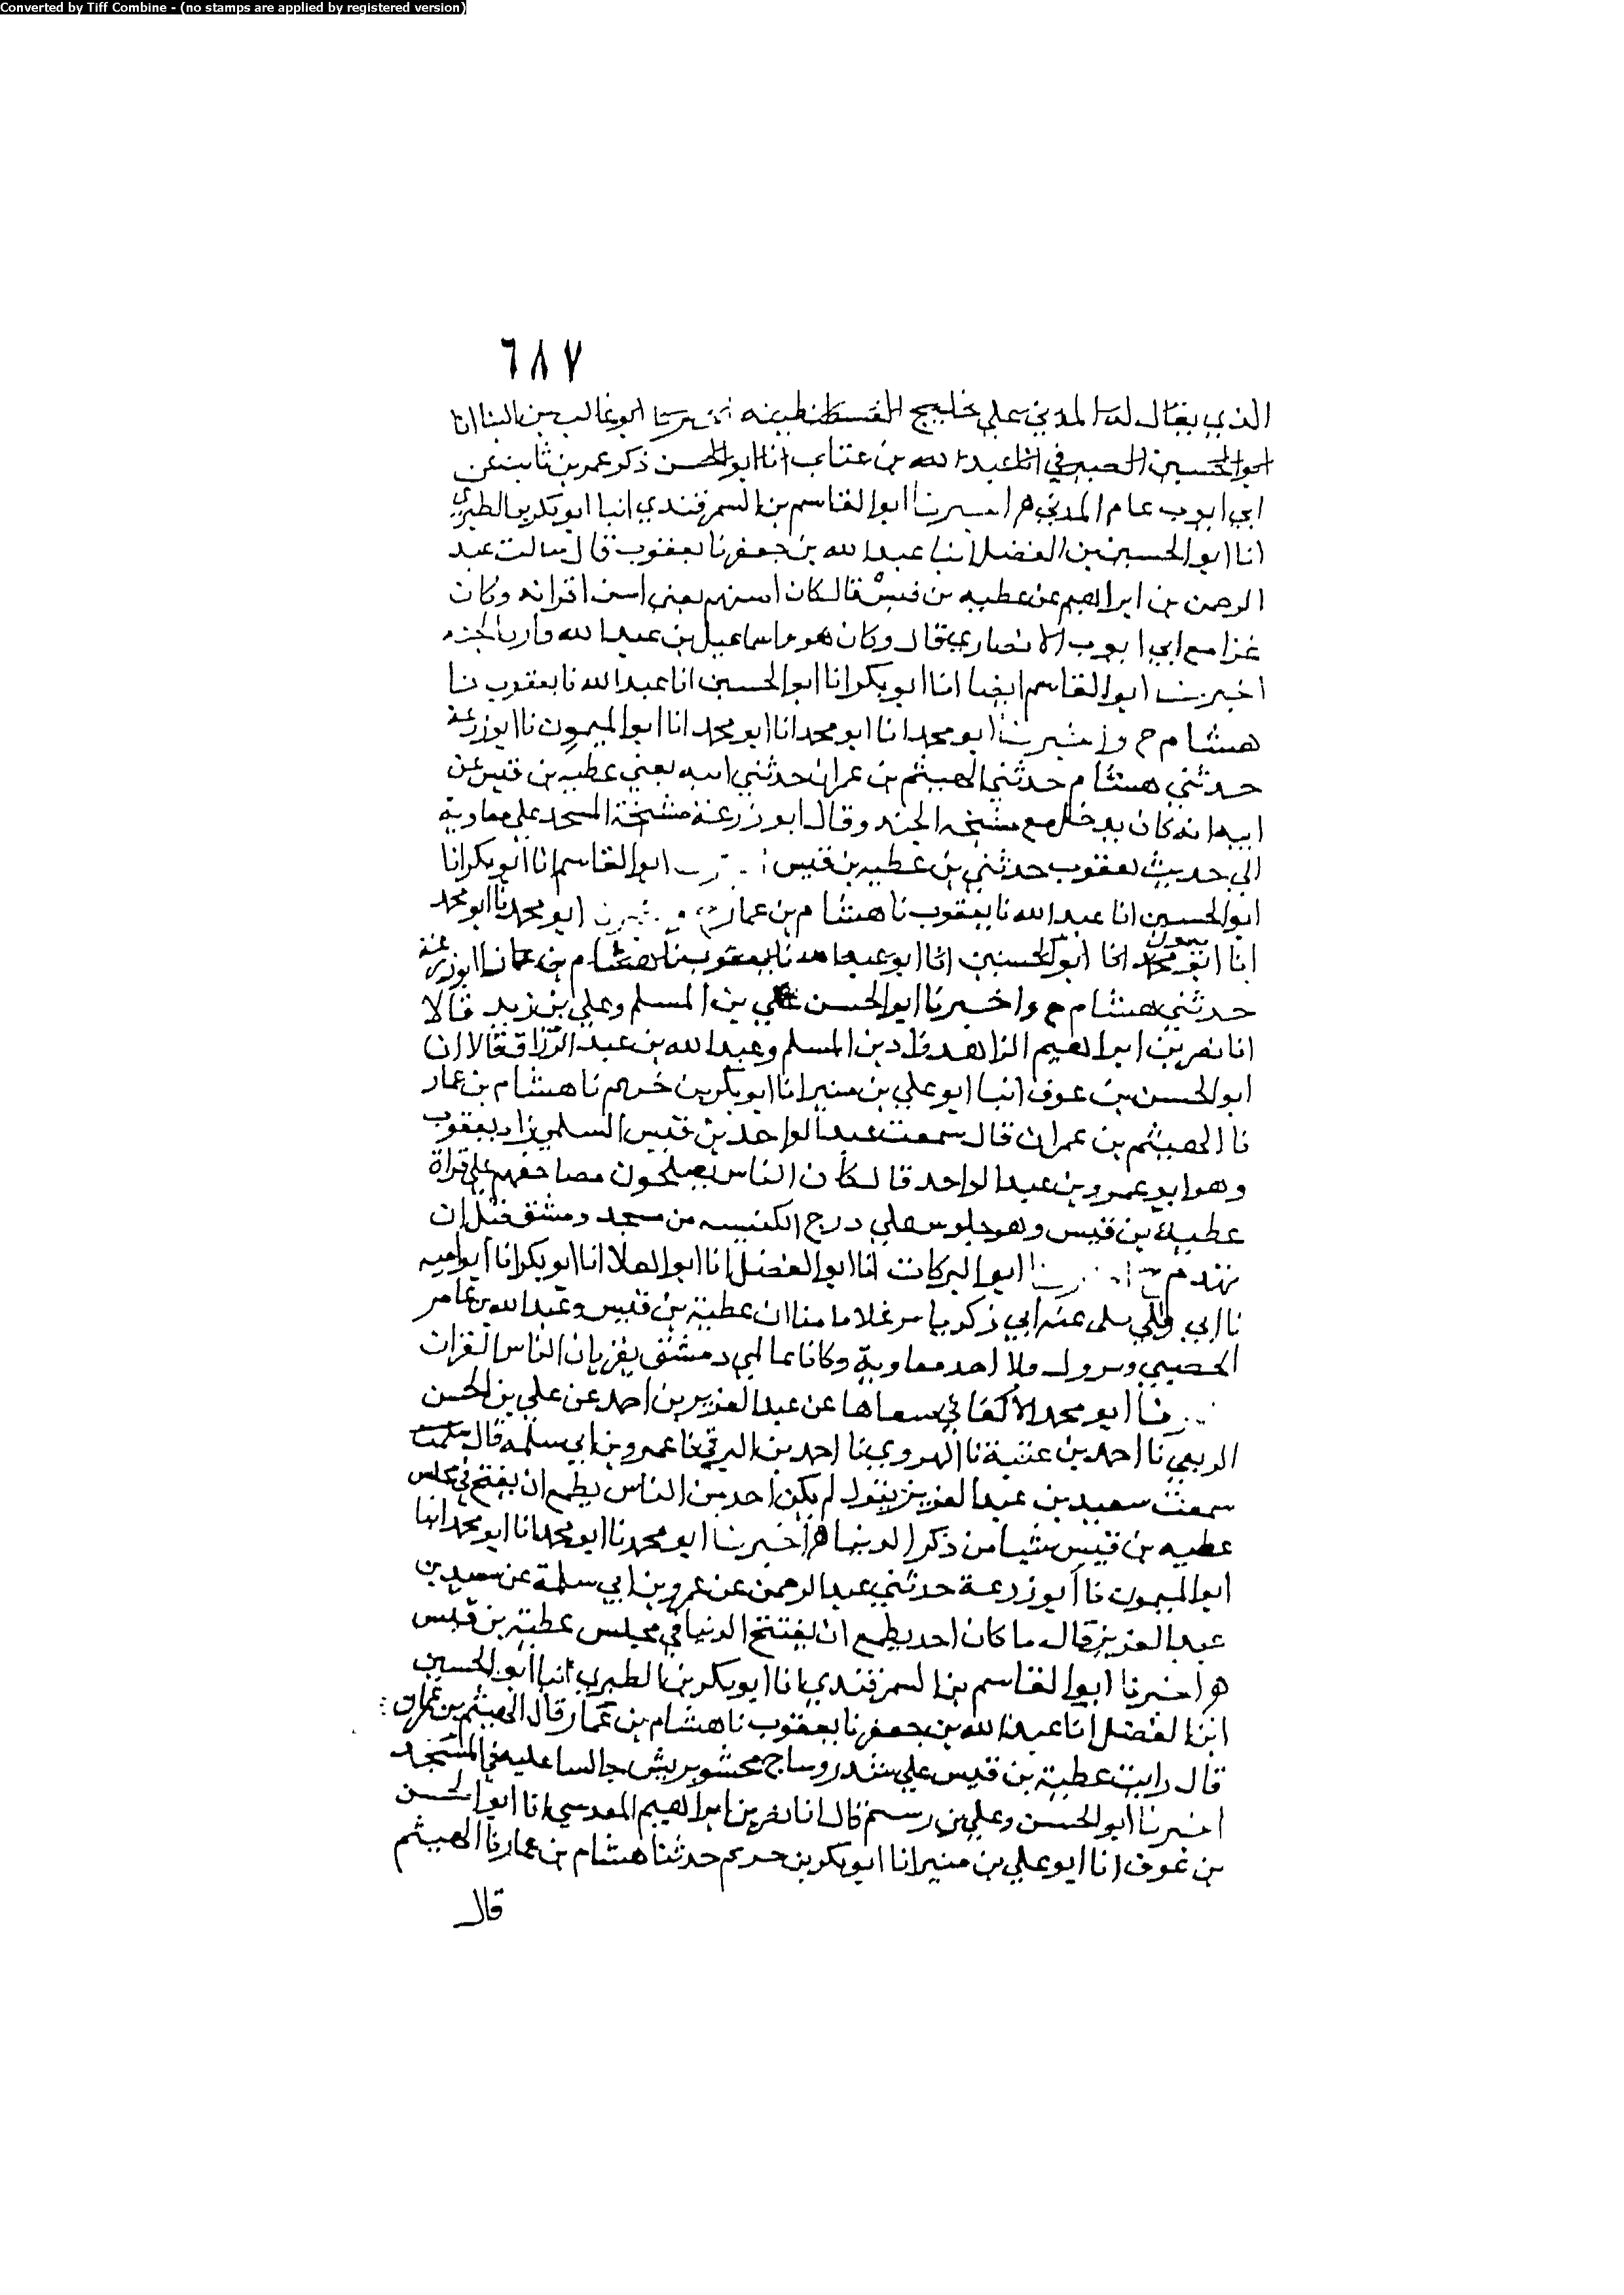 Converted by Tiff Combine - (no stamps are applied by registered version)
٦٨٧
الذي يقال له المدني علي خليج القسطنطينه ابو غالب بن البنا انا
ابو الحسين الصيرفي انا عبد الله بن عتاب انا ابو الحسن ذكر عمر بن ثابت عن
ابي ايوب عام المدني اخبرنا ابو القاسم بن السمرقندي انبا ابو بكر بن الطبري
انا ابو الحسين بن الفضل انبا عبد الله بن جعفر نا يعقوب قال سالت عبد
الرحمن بن ابراهيم عن عطيه بن قيس قال كان اسنهم يعني اسن اقرانه وكان
غزا مع ابي ايوب الانصاري قال وكان هو واسماعيل بن عبيد الله قاريا الجند
اخبرنا ابو القاسم ايضا انا ابو بكر انا ابو الحسين انا عبد الله نا يعقوب نا
هشام ح واخبرنا ابو محمد انا ابو محمد انا ابو محمد انا ابو الميمون نا ابو زرعة
حدثني هشام حدثني الهيثم بن عمران حدثني ابنه يعني عطيه بن قيس عن
ابيه انه كان يدخل مع مشيخه الجند وقال ابو زرعة مشيخة المسجد علي معاوية
الي حديث يعقوب حدثني بن عطيه بن قيس ابو القاسم انا ابو بكر انا
ابو الحسين انا عبد الله نا يعقوب نا هشام بن عمار ابو محمد نا ابو محمد
انا ابو محمد انا ابو الحسين انا ابو عبد الله نا يعقوب نا هشام بن عمار ابو زرعة
حدثني هشام ح واخبرنا ابو الحسن علي بن المسلم وعلي بن زيد قالا
انا نصر بن ابراهيم الزاهد زاد بن المسلم وعبد الله بن عبد الرزاق قالا انا
ابو الحسن بن عوف انبا ابو علي بن منير انا ابو بكر بن خريم نا هشام بن عمار
نا الهيثم بن عمران قال سمعت عبد الواحد بن قيس السلمي زاد يعقوب
وهو ابو عمرو بن عبد الواحد قال كان الناس يصلحون مصاحفهم علي قراة
عطية بن قيس وهو جلوس علي درج الكنيسه من مسجد دمشق قبل ان
تهدم ابو البركات انا ابو الفضل انا ابو العلا انا ابو بكر انا ابو اميه
نا ابي عطية بن قيس وعبد الله بن عامر
اليحصبي معاوية وكانا عالمي دمشق يقريان الناس القران
ابو محمد الاكفاني عن عبد العزيز بن احمد عن علي بن الحسن
الربعي نا احمد بن عتبة نا الهروي نا احمد بن البرقي نا عمرو بن ابي سلمه قال
سمعت سعيد بن عبد العزيز يقول لم يكن احد من الناس يطمع ان يفتح في مجلس
عطيه بن قيس شيا من ذكر الدنيا اخبرنا ابو محمد نا ابو محمد انا ابو محمد انبا
ابو الميمون نا ابو زرعة حدثني عبد الرحمن عن عمرو بن ابي سلمة عن سعيد بن
عبد العزيز قال ما كان احد يطمع ان يفتتح الدنيا في مجلس عطية بن قيس
اخبرنا ابو القاسم بن السمرقندي انا ابو بكر بن الطبري انبا ابو الحسين
ابن الفضل انا عبد الله بن جعفر نا يعقوب نا هشام بن عمار قال الهيثم بن عمران
قال رايت عطية بن قيس علي ساج محشو بريش جالسا عليه في المسجد
اخبرنا ابو الحسن وعلي بن قال انا نصر بن ابراهيم المقدسي انا ابو الحسن
بن عوف انا ابو علي بن منير انا ابو بكر بن خريم حدثنا هشام بن عمار نا الهيثم
قال